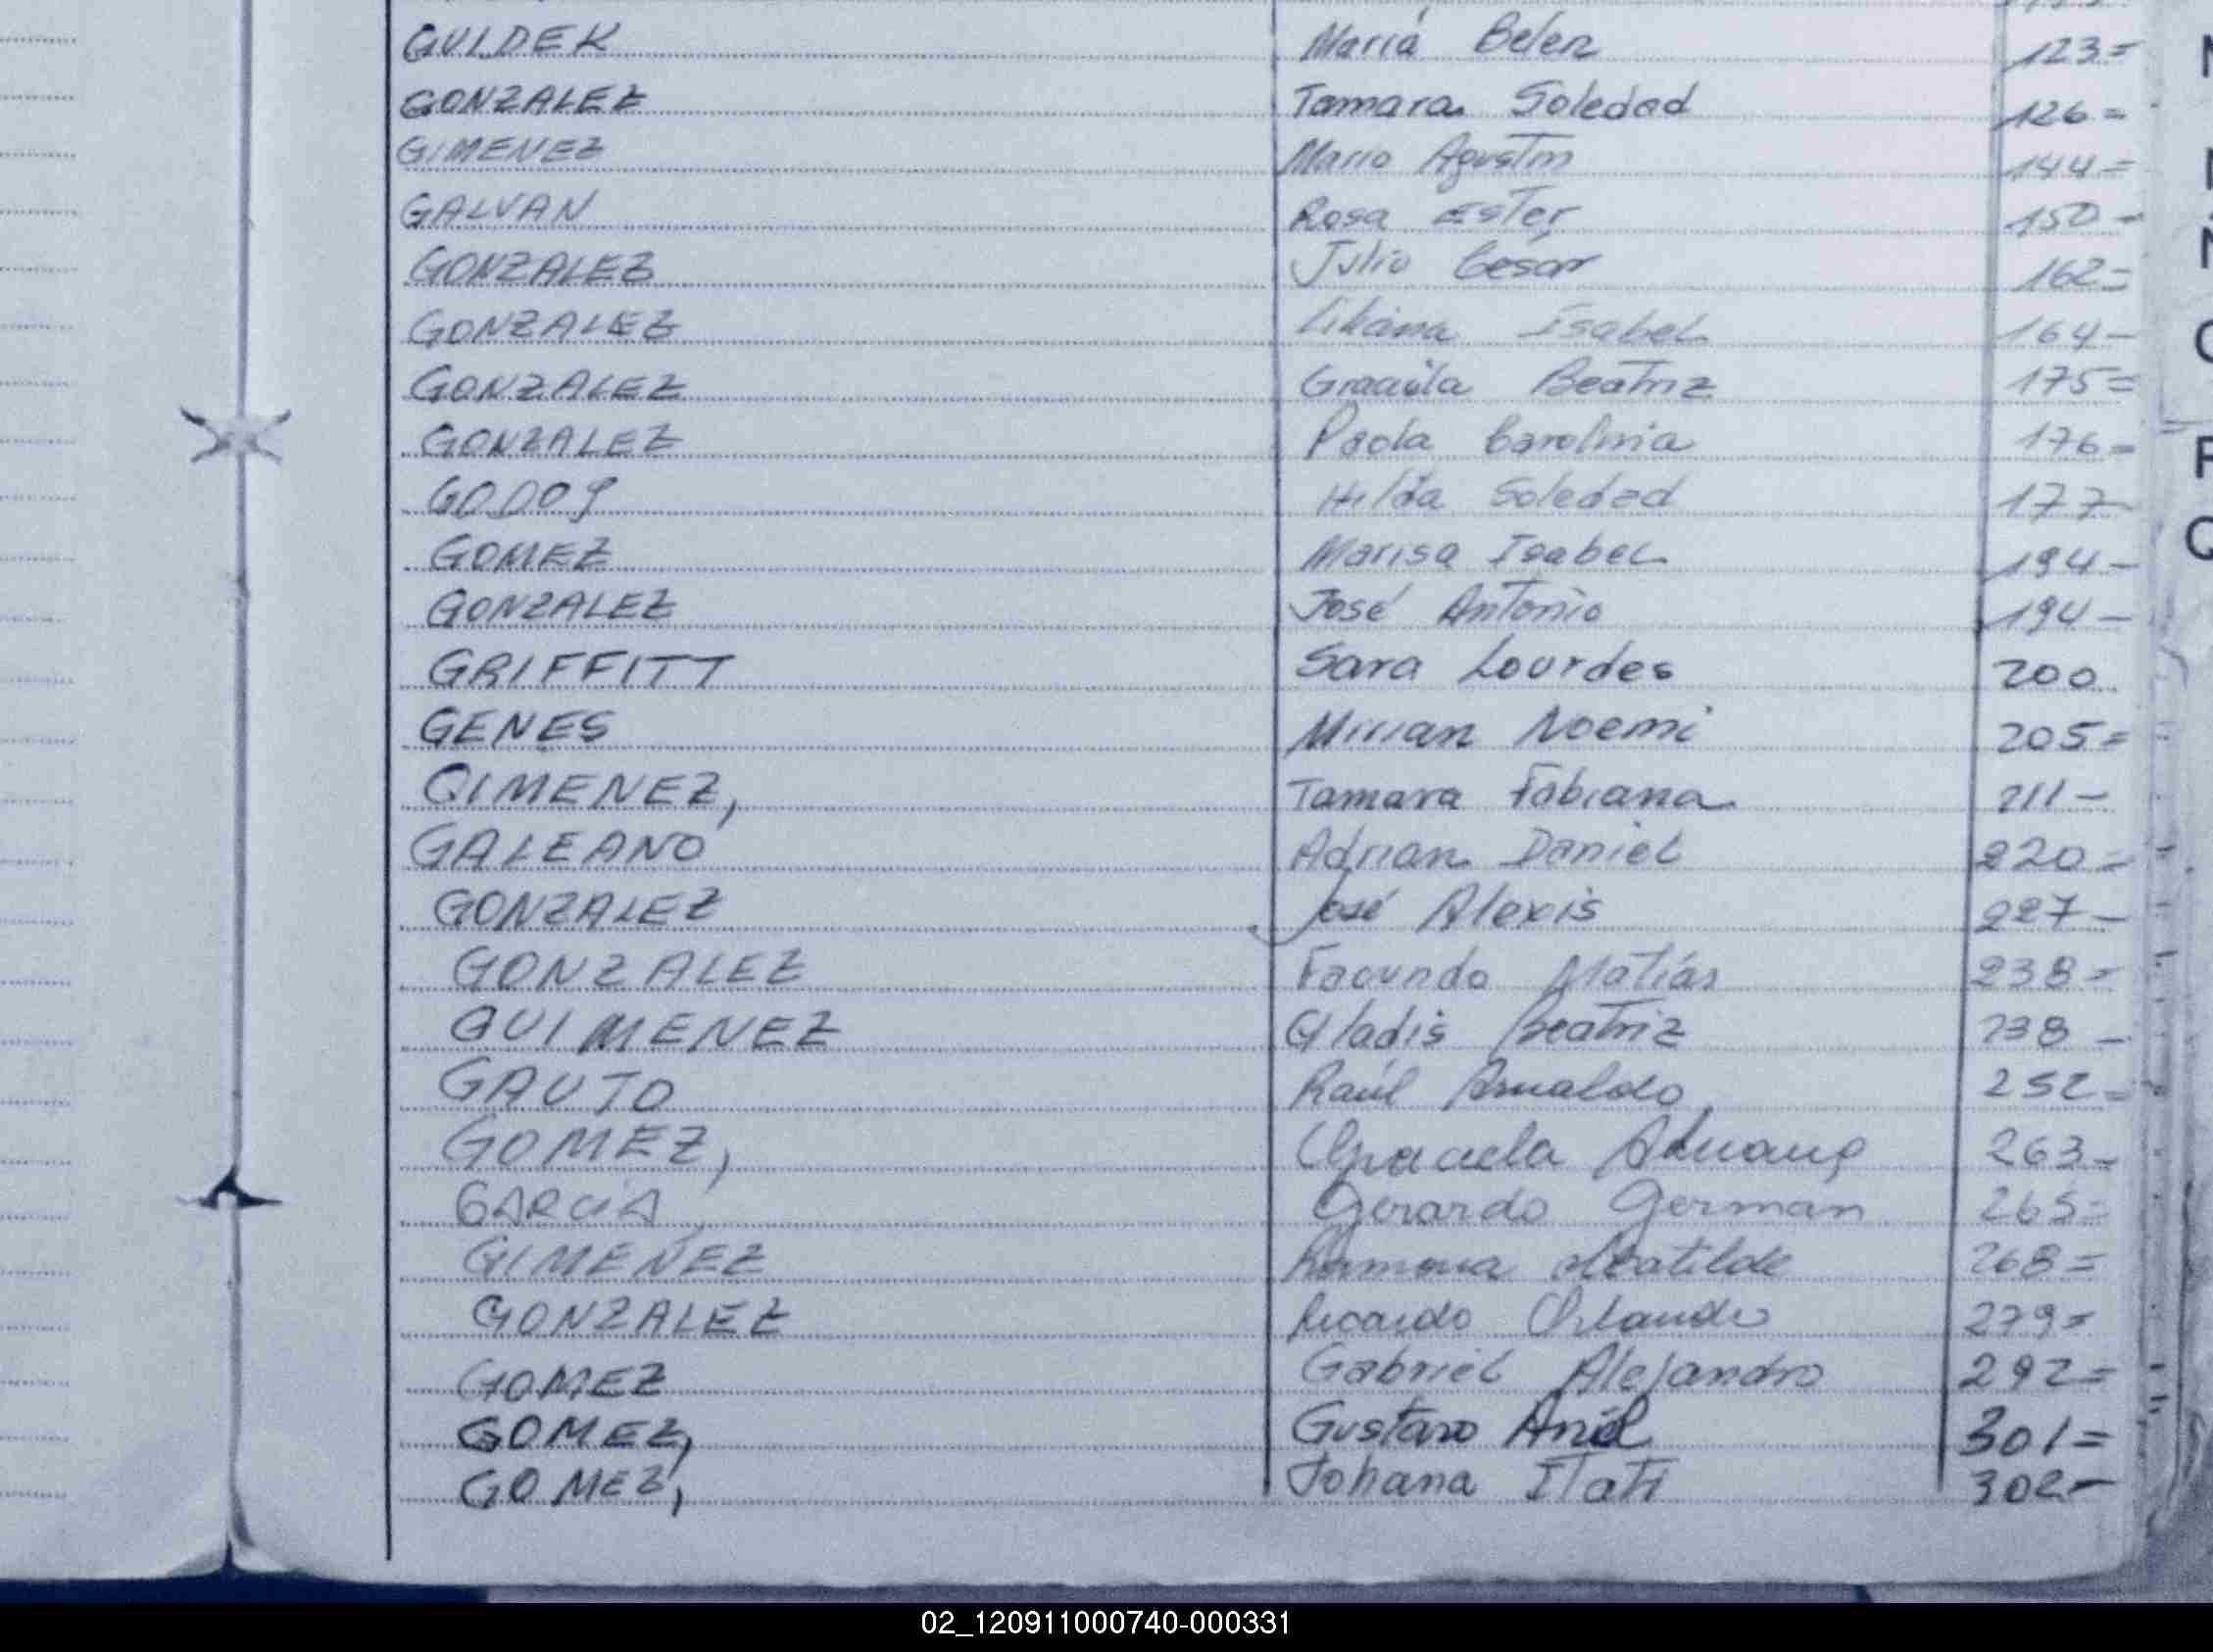 GULDEK María Belen 123=
GONZALEZ Tamara Soledad 126=
GIMENEZ Mario Agustin 144=
GALVAN Rosa Ester 150-
GONZALEZ Julio César 162=
GONZALEZ Liliana Isabel 164-
GONZALEZ Graciela Beatriz 175=
GONZALEZ Paola Carolina 176=
GODOY Hilda Soledad 177-
GOMEZ Marisa Isabel 194-
GONZALEZ José Antonio 194-
GRIFFITT Sara Lourdes 200
GENES Mirian Noemi 205=
GIMENEZ, Tamara Fabiana 211-
GALEANO Adrian Daniel 220-
GONZALEZ José Alexis 227-
GONZALEZ Facundo Matías 238=
GUIMENEZ Gladis Beatriz 238-
GAUTO Raúl Arnaldo 252=
GOMEZ, Graciela Adriana 263-
GARCÍA Gerardo German 265=
GIMENEZ Ramona Matilde 268=
GONZALEZ Ricardo Orlando 279=
GOMEZ Gabriel Alejandro 292=
GOMEZ, Gustavo Ariel 301=
GOMEZ, Johana Itati 302-
P
02_120911000740-000331